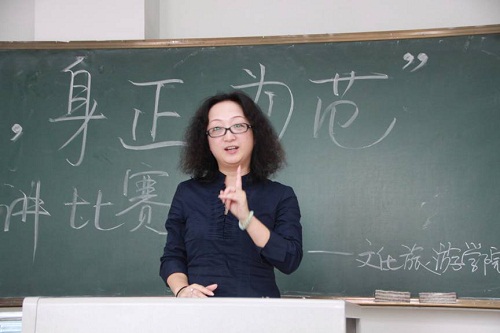 ，身正为范”
讲比赛
——文化旅游学院